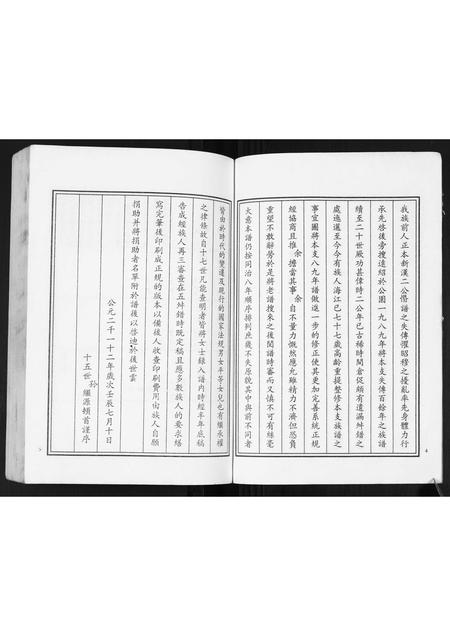 我族前人正本新漢二公懼譜之失傳懼昭穆之擾亂率先身體力行
承先啓後旁搜遠紹於公園一九八九年將本支失傳百餘年之族譜
續至二十世厥功甚偉時二公年已古稀時間倉促頗有遺漏舛錯之
處迤邐至今今有族人海江已七十七歲高齡重提整修本支族譜之
事宜圖將本支八九年譜做進一步的修正使其更加完善系統正規
經協商且推 余 擔當其事 余 自不量力慨然應允雖精力不濟但恐負
重望不敢辭勞於是將老譜搜來之後閱譜時審而又慎不可有絲毫
大意本譜仍按同治八年順序排列庶幾不失原貌其中與前不同者
4
皆由於時代的變遷及現行的國家法規男女平等女兒也有繼承權
之律條故自十七世凡能查明者皆將女士錄入譜內時經半年底稿
告成經族人再三審查在五舛錯時既定稿且應多數族人的要求繕
寫完筆後印刷成正規的版本以備後人收查印刷費用由族人自願
捐助并將捐助者名單附於譜後以啓迪於後世雲
公元二千一十二年歲次壬辰七月十日
十五世孫 繼源頓首謹序
5